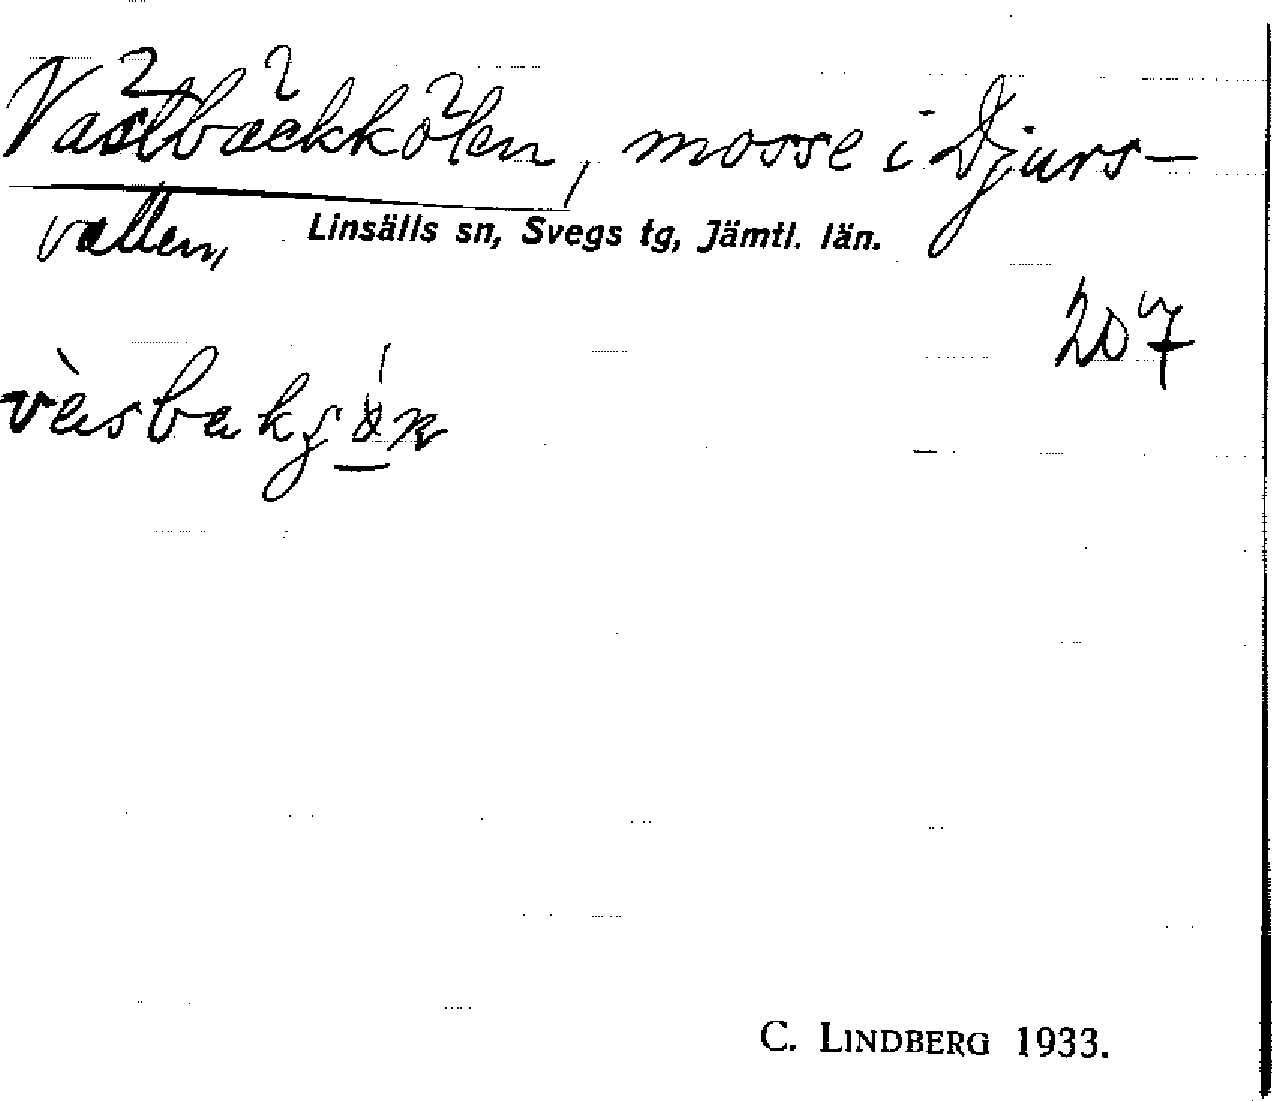 Västbäckkölen, mosse i Djurs-
vallen, Linsälls sn, Svegs tg, Jämtl. län.
207
C. LINDBERG 1933.